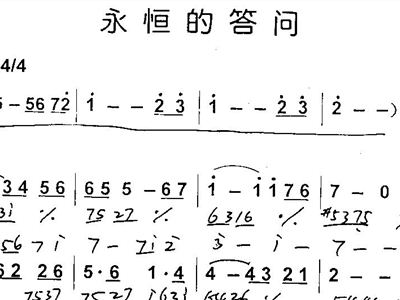 永恒的答问
4/4
5-5672̇ | 1̇ - - 2̇ 3̇ | 1̇ - - 2̇ 3̇ | 2̇ - - )
34 56 | 65 5 - 67 | 1̇ - 1̇ 1̇76 | 7 - 0
31̇ ٪ | 7527 ٪ | 6316 ٪ | #5375
567 1̇ | 7 - 7̇1̇ 2̇ | 3 - 1̇ - | 7 - -
62 26 | 5·6 1·4 | 4 - 43 21 | 2 - -